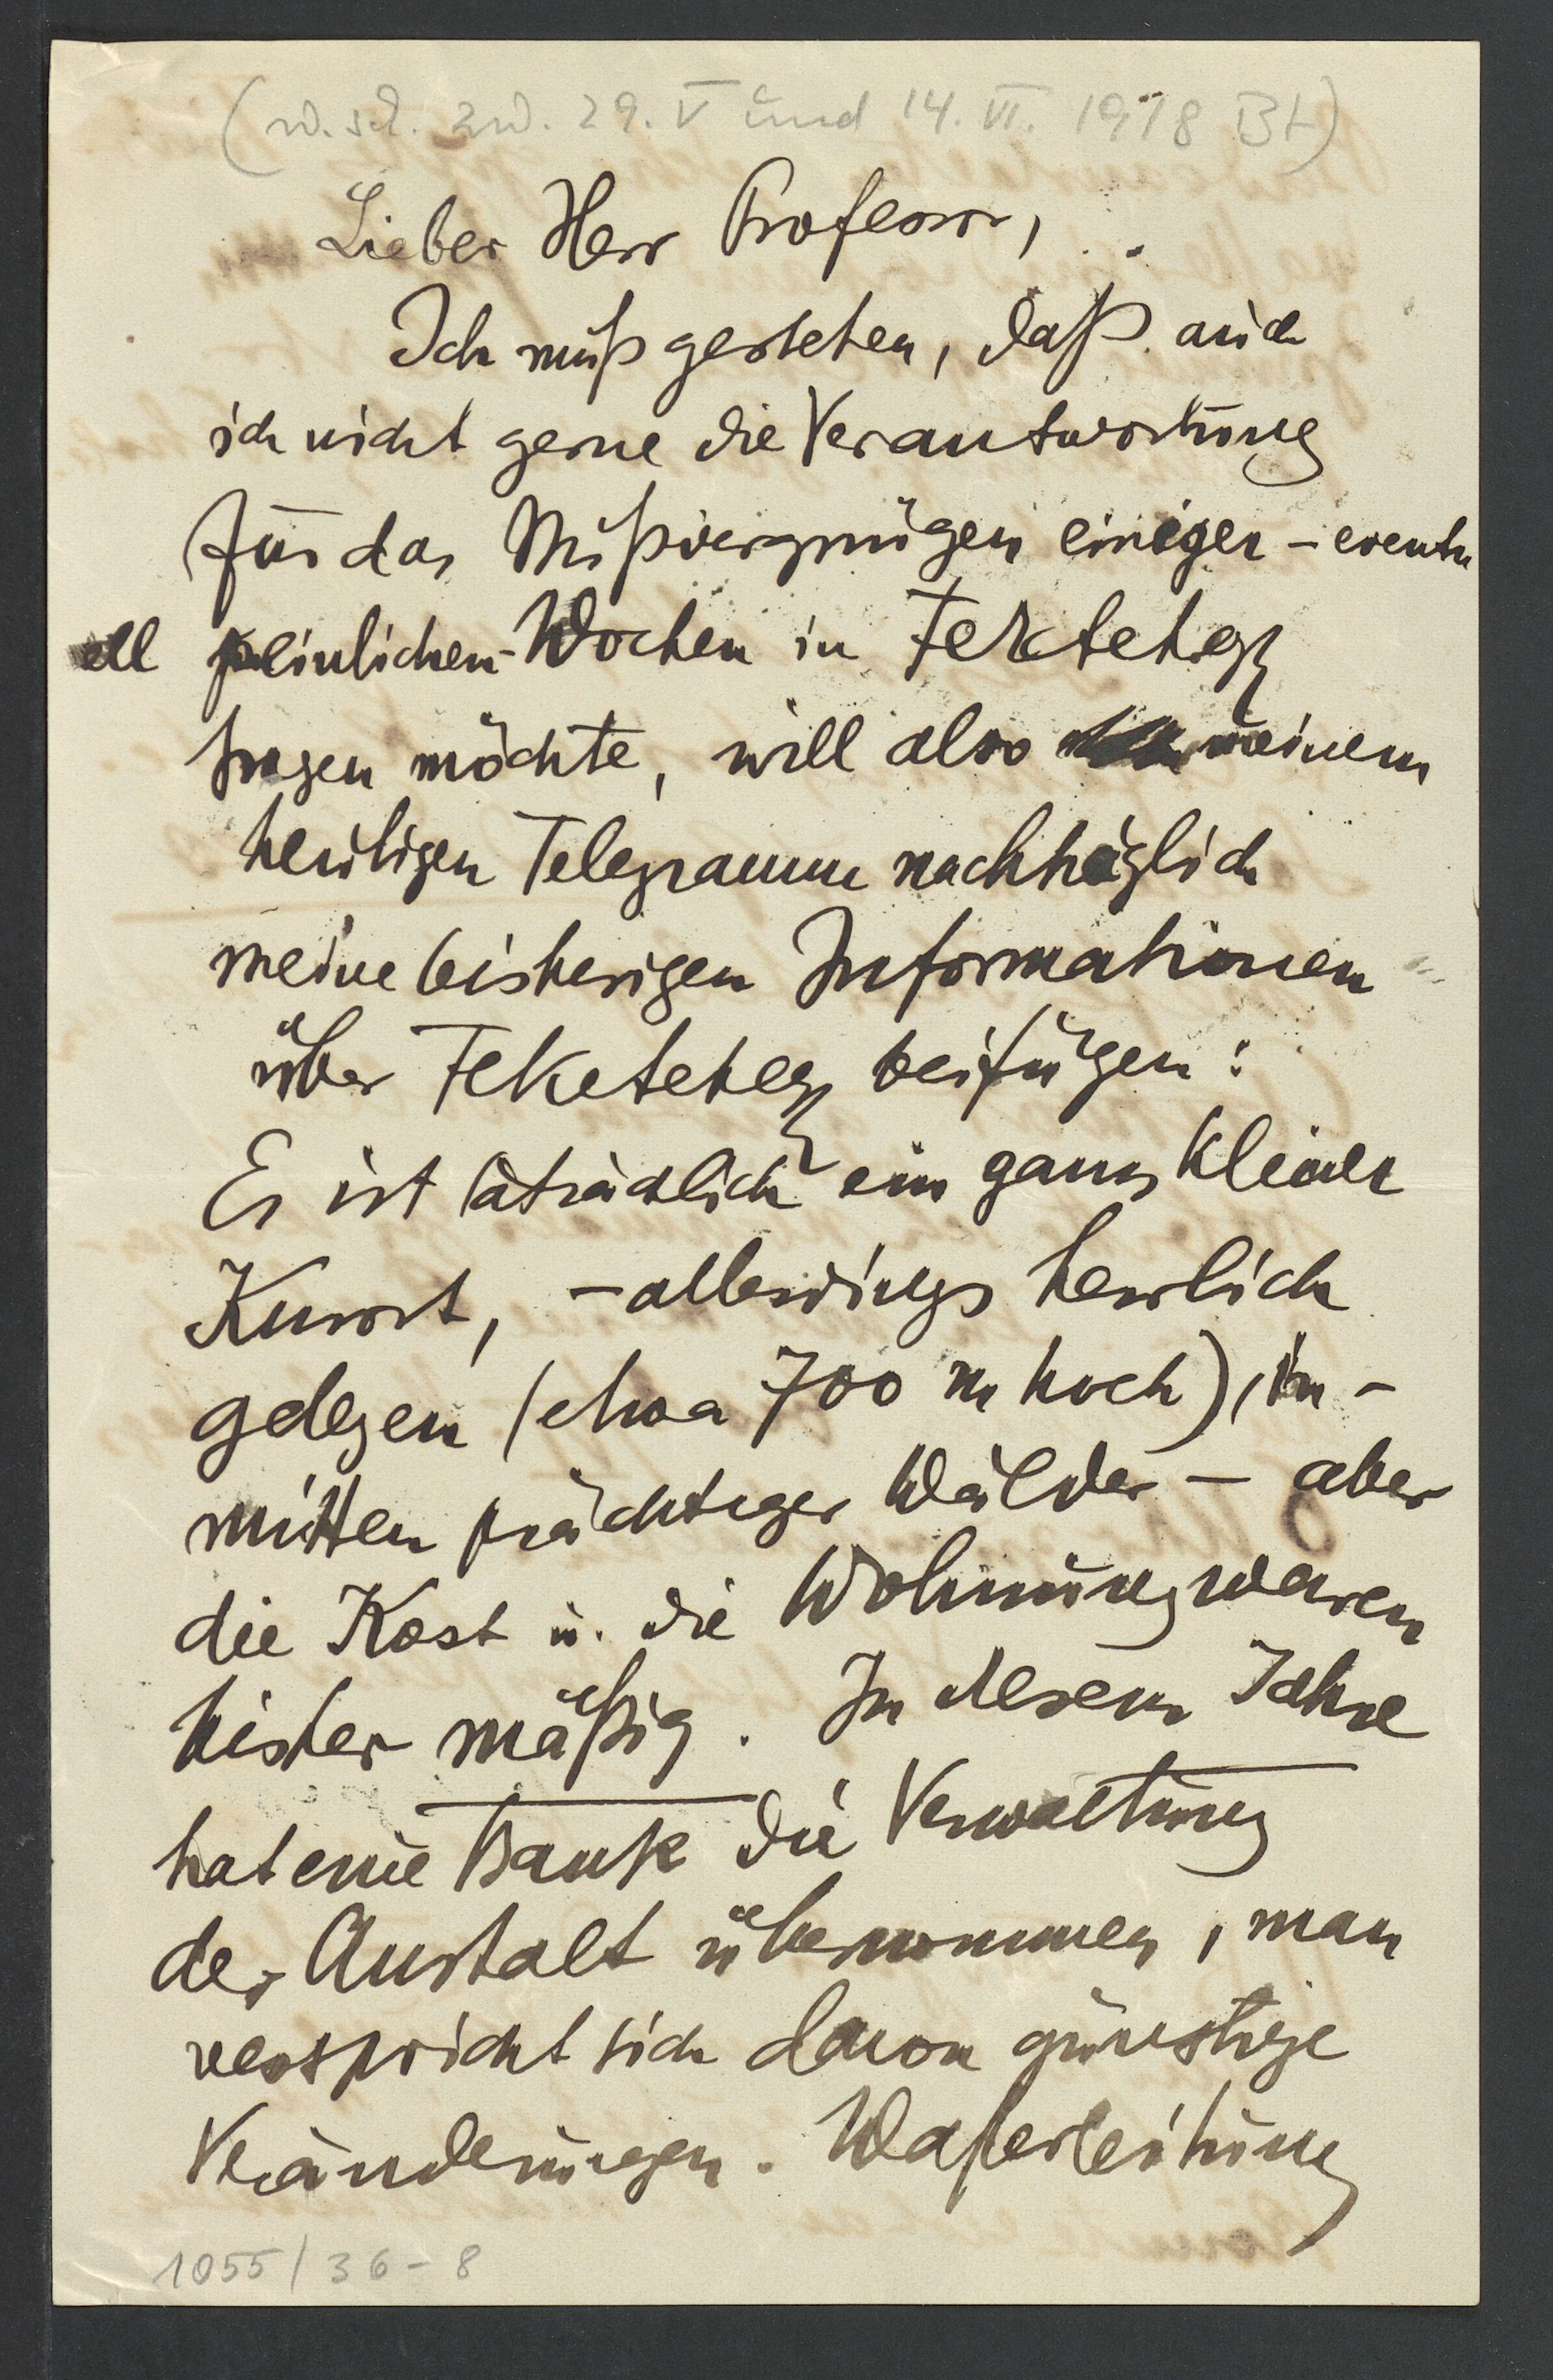 (w. sch. zw. 29. V und 14. VI. 1918 Bt)
Lieber Herr Professor,
Ich muß gestehen, daß auch
ich nicht gerne die Verantwortung
für das Mißvergnügen einiger – eventu
ell peinlichen – Wochen in Feketehegy
tragen möchte, will also meinem
heutigen Telegramm nachträglich
meine bisherigen Informationen
über Feketehegy beifügen:
Es ist tatsächlich ein ganz kleiner
Kurort, – allerdings herrlich
gelegen (etwa 700 m hoch), in-
mitten prächtiger Wälder – aber
die Kost u. die Wohnung waren
bisher mäßig. In diesem Jahre
hat eine Bank die Verwaltung
der Anstalt übernommen, man
verspricht sich davon günstige
Veränderungen. Waßerleitung
1055/36-8